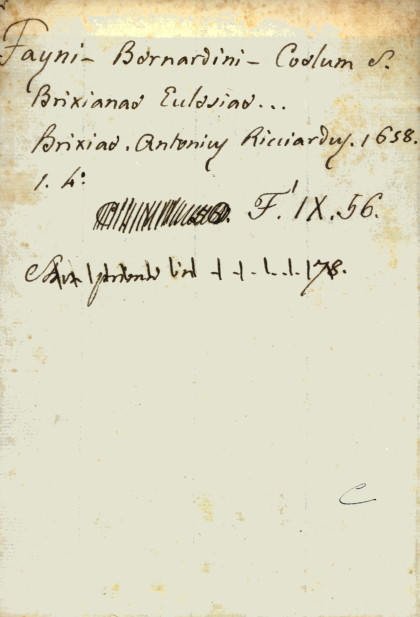 Fayni - Bernardini - Coelum S.
Brixianae Ecclesiae...
Brixiae. Antonius Ricciardus. 1658.
1. 4°
F. IX. 56.
178.
C